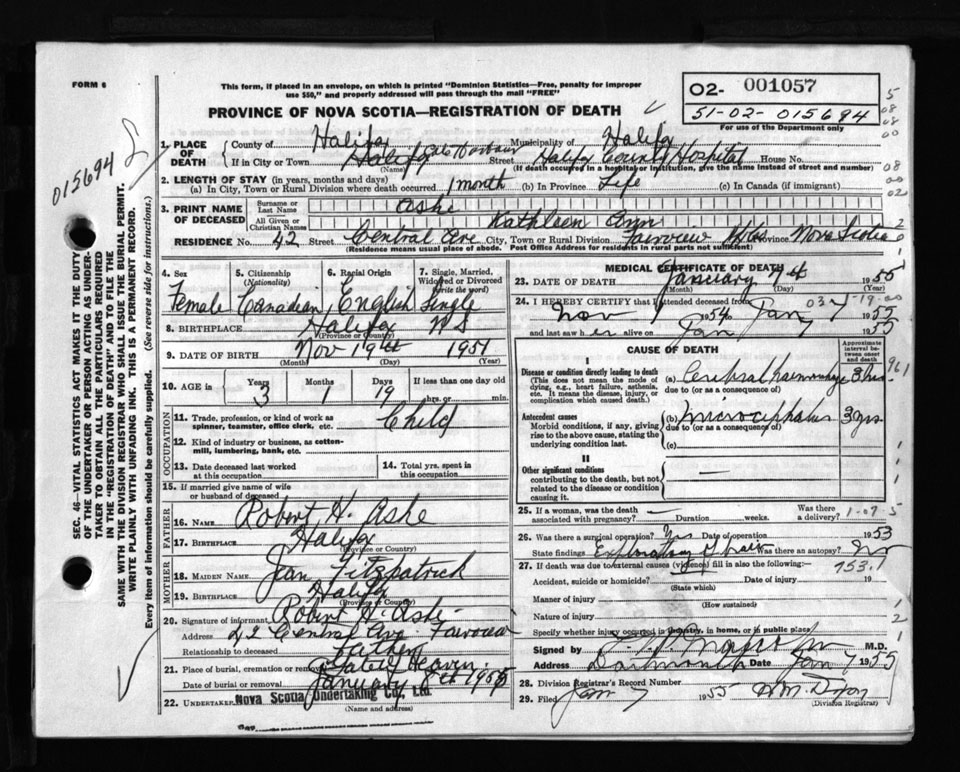 FORM 6
This form, if placed in an envelope, on which is printed "Dominion Statistics—Free, penalty for improper
use $50," and properly addressed will pass through the mail "FREE"
PROVINCE OF NOVA SCOTIA—REGISTRATION OF DEATH
O2- 001057
51-02-015694
For use of the Department only
015694
SEC. 46—VITAL STATISTICS ACT MAKES IT THE DUTY
OF THE UNDERTAKER OR PERSON ACTING AS UNDER-
TAKER TO OBTAIN ALL THE PARTICULARS REQUIRED
IN THE "REGISTRATION OF DEATH" AND TO FILE THE
SAME WITH THE DIVISION REGISTRAR WHO SHALL ISSUE THE BURIAL PERMIT.
WRITE PLAINLY WITH UNFADING INK. THIS IS A PERMANENT RECORD.
Every item of information should be carefully supplied. (See reverse side for instructions.)
1. PLACE OF DEATH
County of Halifax Municipality of Halifax
If in City or Town Halifax Street Halifax County Hospital House No.
(Name) (If death occurred in a hospital or institution, give the name instead of street and number)
2. LENGTH OF STAY (in years, months and days)
(a) In City, Town or Rural Division where death occurred 1 month (b) In Province Life (c) In Canada (if immigrant)
3. PRINT NAME OF DECEASED
Surname or Last Name Ashe
All Given or Christian Names Kathleen Ann
RESIDENCE No. 42 Street Central Ave City, Town or Rural Division Fairview Hfx Province Nova Scotia
(Residence means usual place of abode. Post Office Address for residents in rural parts not sufficient)
4. Sex
Female
5. Citizenship (Nationality)
Canadian
6. Racial Origin
English
7. Single, Married, Widowed or Divorced (write the word)
Single
8. BIRTHPLACE Halifax NS
(Province or Country)
9. DATE OF BIRTH Nov 19th 1951
(Month) (Day) (Year)
10. AGE in
Years 3 Months 1 Days 19
If less than one day old
hrs. or min.
OCCUPATION
11. Trade, profession or kind of work as
spinner, teamster, office clerk, etc. Child
12. Kind of industry or business, as cotton-
mill, lumbering, bank, etc.
13. Date deceased last worked
at this occupation
14. Total yrs. spent in
this occupation
15. If married give name of wife
or husband of deceased
FATHER
16. NAME Robert H. Ashe
17. BIRTHPLACE Halifax
(Province or Country)
MOTHER
18. MAIDEN NAME Jean Fitzpatrick
19. BIRTHPLACE Halifax
(Province or Country)
20. Signature of informant Robert H. Ashe
Address 42 Central Ave. Fairview
Relationship to deceased Father
21. Place of burial, cremation or removal Gate of Heaven
Date of burial or removal January 8th 1955
22. UNDERTAKER Nova Scotia Undertaking Co., Ltd.
(Name and address)
MEDICAL CERTIFICATE OF DEATH
23. DATE OF DEATH January 7th 1955
(Month) (Day) (Year)
24. I HEREBY CERTIFY that I attended deceased from
Nov 1954 Jan 7 1955
and last saw her alive on Jan 7 1955
CAUSE OF DEATH
Approximate interval between onset and death
I
Disease or condition directly leading to death
(This does not mean the mode of dying, e.g., heart failure, asthenia, etc. It means the disease, injury, or complication which caused death.)
(a) Cerebral haemorrhage 3 hrs.
due to (or as a consequence of)
Antecedent causes
Morbid conditions, if any, giving rise to the above cause, stating the underlying condition last.
(b) Microcephalus 3 yrs.
due to (or as a consequence of)
(c)
II
Other significant conditions
contributing to the death, but not related to the disease or condition causing it.
25. If a woman, was the death
associated with pregnancy? Duration weeks. Was there a delivery?
26. Was there a surgical operation? Yes Date of operation 1953
State findings Exploratory of brain Was there an autopsy? No
753.1
27. If death was due to external causes (violence) fill in also the following:
Accident, suicide or homicide? Date of injury 19
(State which)
Manner of injury
(How sustained)
Nature of injury
Specify whether injury occurred in industry, in home, or in public place
Signed by M.D.
Address Dartmouth Date Jan 7 1955
28. Division Registrar's Record Number
29. Filed Jan 7 1955
(Division Registrar)